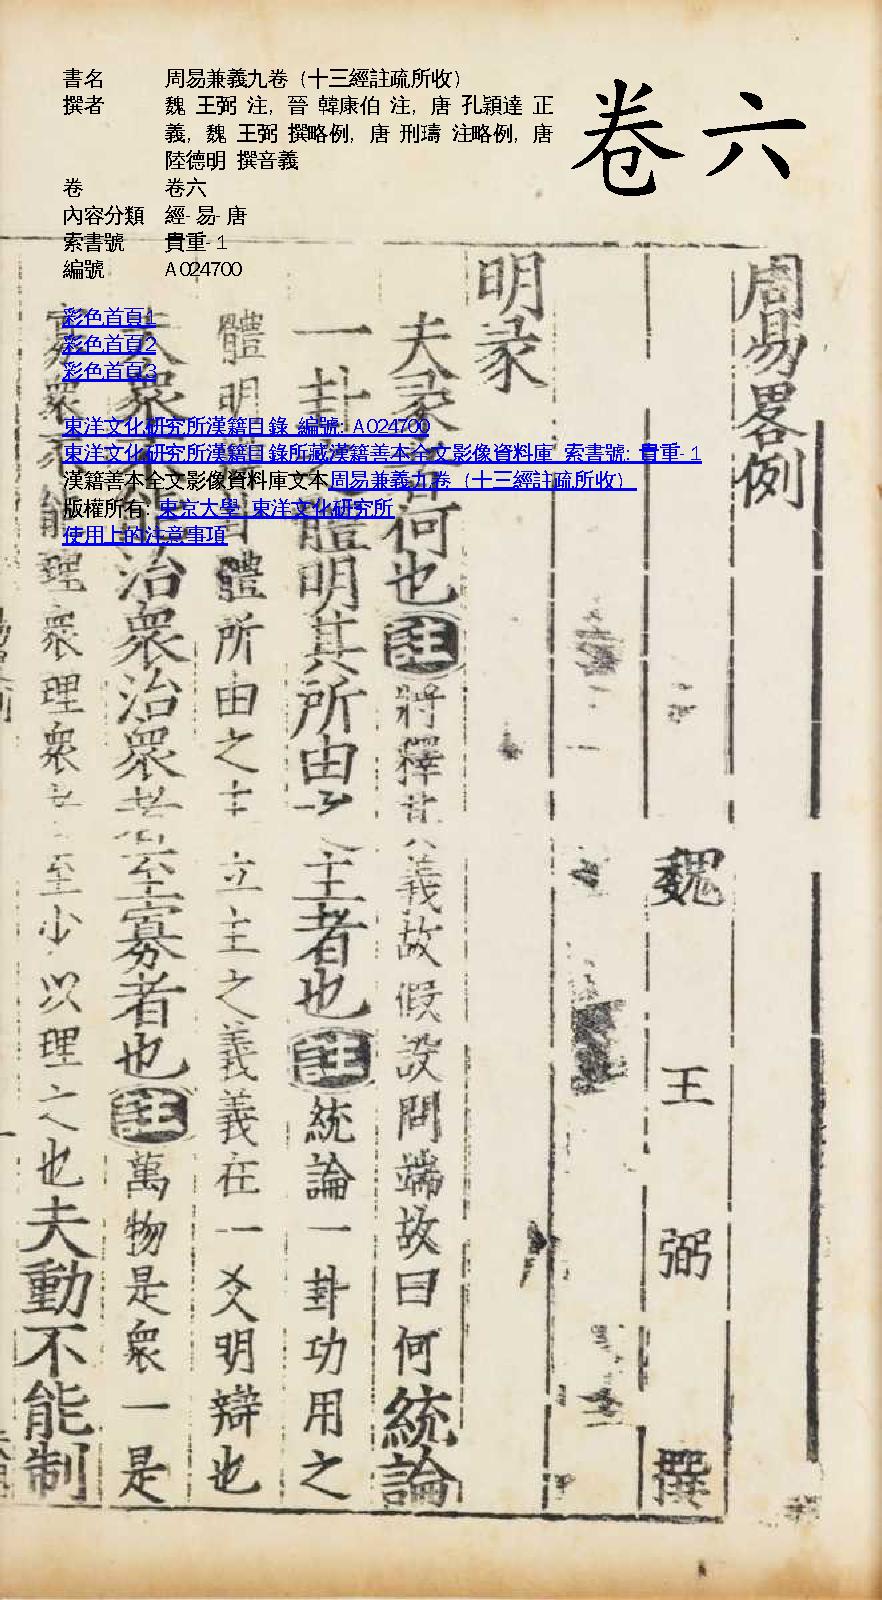 書名 周易兼義九卷（十三經註疏所收）
撰者 魏 王弼 注, 晉 韓康伯 注, 唐 孔穎達 正
義, 魏 王弼 撰略例, 唐 刑璹 注略例, 唐
陸德明 撰音義
卷 卷六
內容分類 經-易-唐
索書號 貴重-1
編號 A024700
卷六
彩色首頁1
彩色首頁2
彩色首頁3
東洋文化研究所漢籍目錄 編號: A024700
東洋文化研究所漢籍目錄所藏漢籍善本全文影像資料庫 索書號: 貴重-1
漢籍善本全文影像資料庫文本周易兼義九卷（十三經註疏所收）
版權所有: 東京大學 東洋文化研究所
使用上的注意事項
周易畧例
魏 王 弼 撰
明彖
夫彖者何也註將釋其義故假設問端故曰何統論
一卦之體明其所由之主者也註統論一卦功用之
體明辯卦體體所由之主立主之義義在一爻明辯也
夫衆不能治衆治衆者至寡者也註萬物是衆一是
寡衆不能理衆理衆者至少以理之也夫動不能制